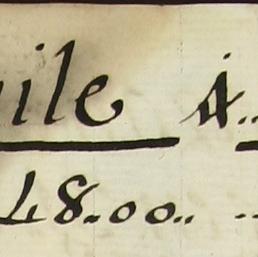 ile 4..
48.00.. ..